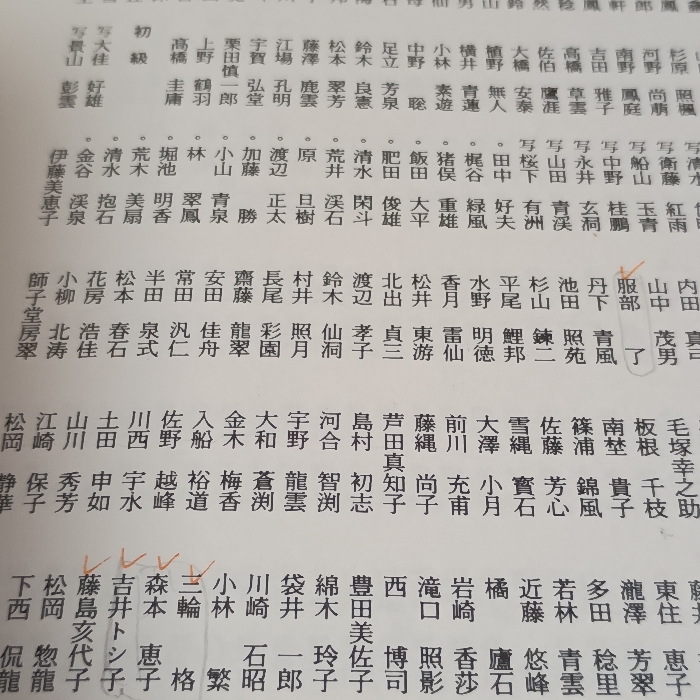 杉原 照楓
河野 尚萠
南野 鳳庭
吉田 雅子
高橋 草雲
佐伯 鷹涯
大橋 安泰
植野 無人
横井 青蓮
小林 素遊
中野 聡
足立 芳泉
鈴木 良憲
松本 翠芳
藤澤 鹿雲
江場 孔明
宇賀 弘堂
栗田慎一郎
上野 鶴羽
高橋 圭庸
初級
写大佳 好雄
写景山 彭雲
写清水
写衛藤 紅雨
写船山 玉青
写中野 桂鵬
写永井 玄洞
写山田 青渓
写桜下 有洲
。田中 好夫
。梶谷 緑風
。猪俣 重雄
。飯田 大平
。肥田 俊雄
。清水 閑斗
。荒井 渓石
。原 旦樹
。渡辺 正太
。加藤 勝
。小山 青泉
。林 翠鳳
。堀池 明香
。荒木 美扇
。清水 抱石
。金谷 渓泉
伊藤美恵子
内田 真司
山中 茂男
服部 了
丹下 青風
池田 照苑
杉山 鍊二
平尾 鯉邦
水野 明徳
香月 雷仙
松井 東游
北出 貞三
渡辺 孝子
鈴木 仙洞
村井 照月
長尾 彩園
齋藤 龍翠
安田 佳舟
常田 汎仁
半田 泉式
松本 春石
花房 浩佳
小柳 北涛
師子堂房翠
毛塚幸之助
板根 千枝
南埜 貴子
篠浦 錦風
佐藤 芳心
雪縄 寳石
大澤 小月
前川 充甫
藤縄 尚子
芦田真知子
島村 初志
河合 智渕
宇野 龍雲
大和 蒼渕
金木 梅香
入船 裕道
佐野 越峰
川西 宇水
土田 申如
山川 秀芳
江崎 保子
松岡 静華
東住 恵子
瀧澤 芳翠
多田 稔里
若林 青雲
近藤 悠峰
橘 廬石
岩崎 香莎
滝口 照影
西 博司
豊田美佐子
綿木 玲子
袋井 一郎
川崎 石昭
小林 繁
三輪 格
森本 恵子
吉井トシ子
藤島亥代子
松岡 惣龍
下西 侃龍